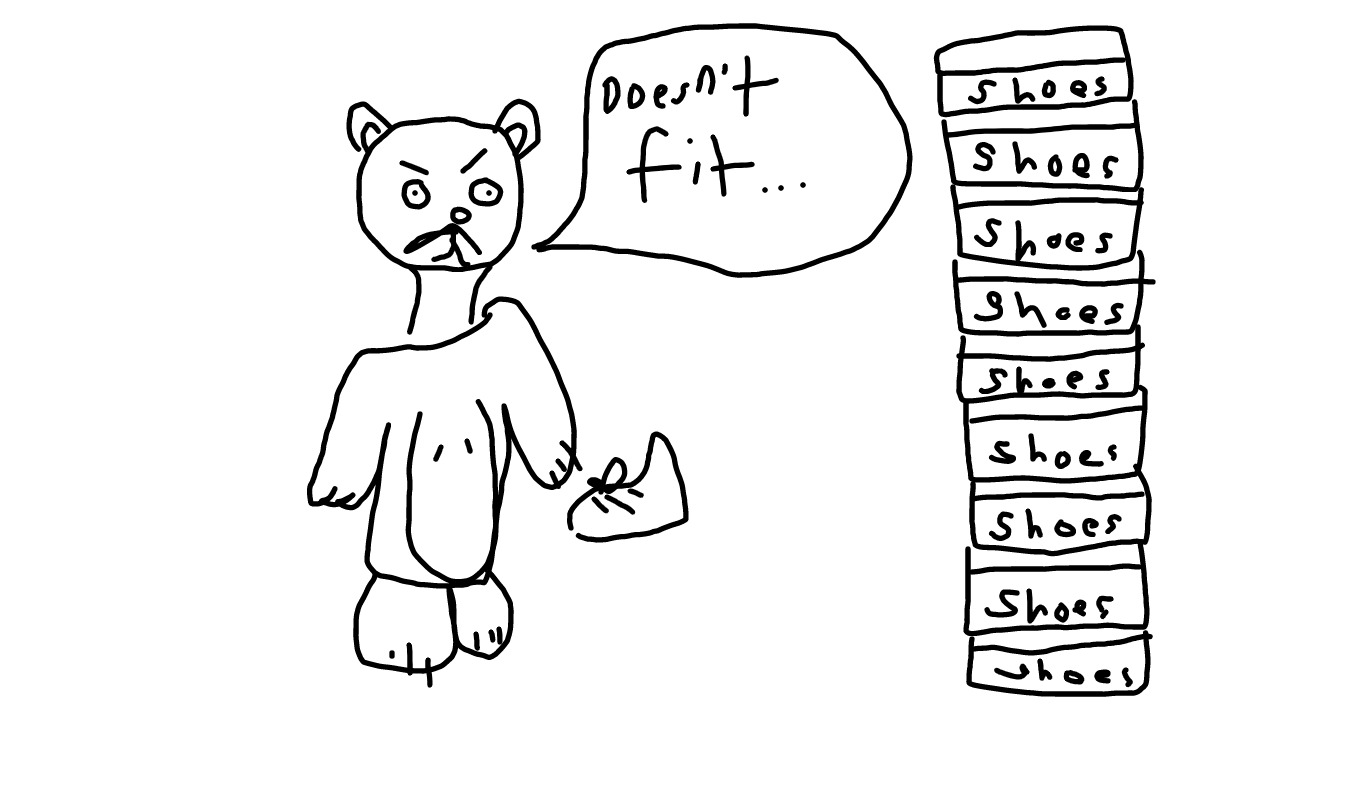 Doesn't
fit...
shoes
shoes
shoes
shoes
shoes
shoes
shoes
shoes
shoes